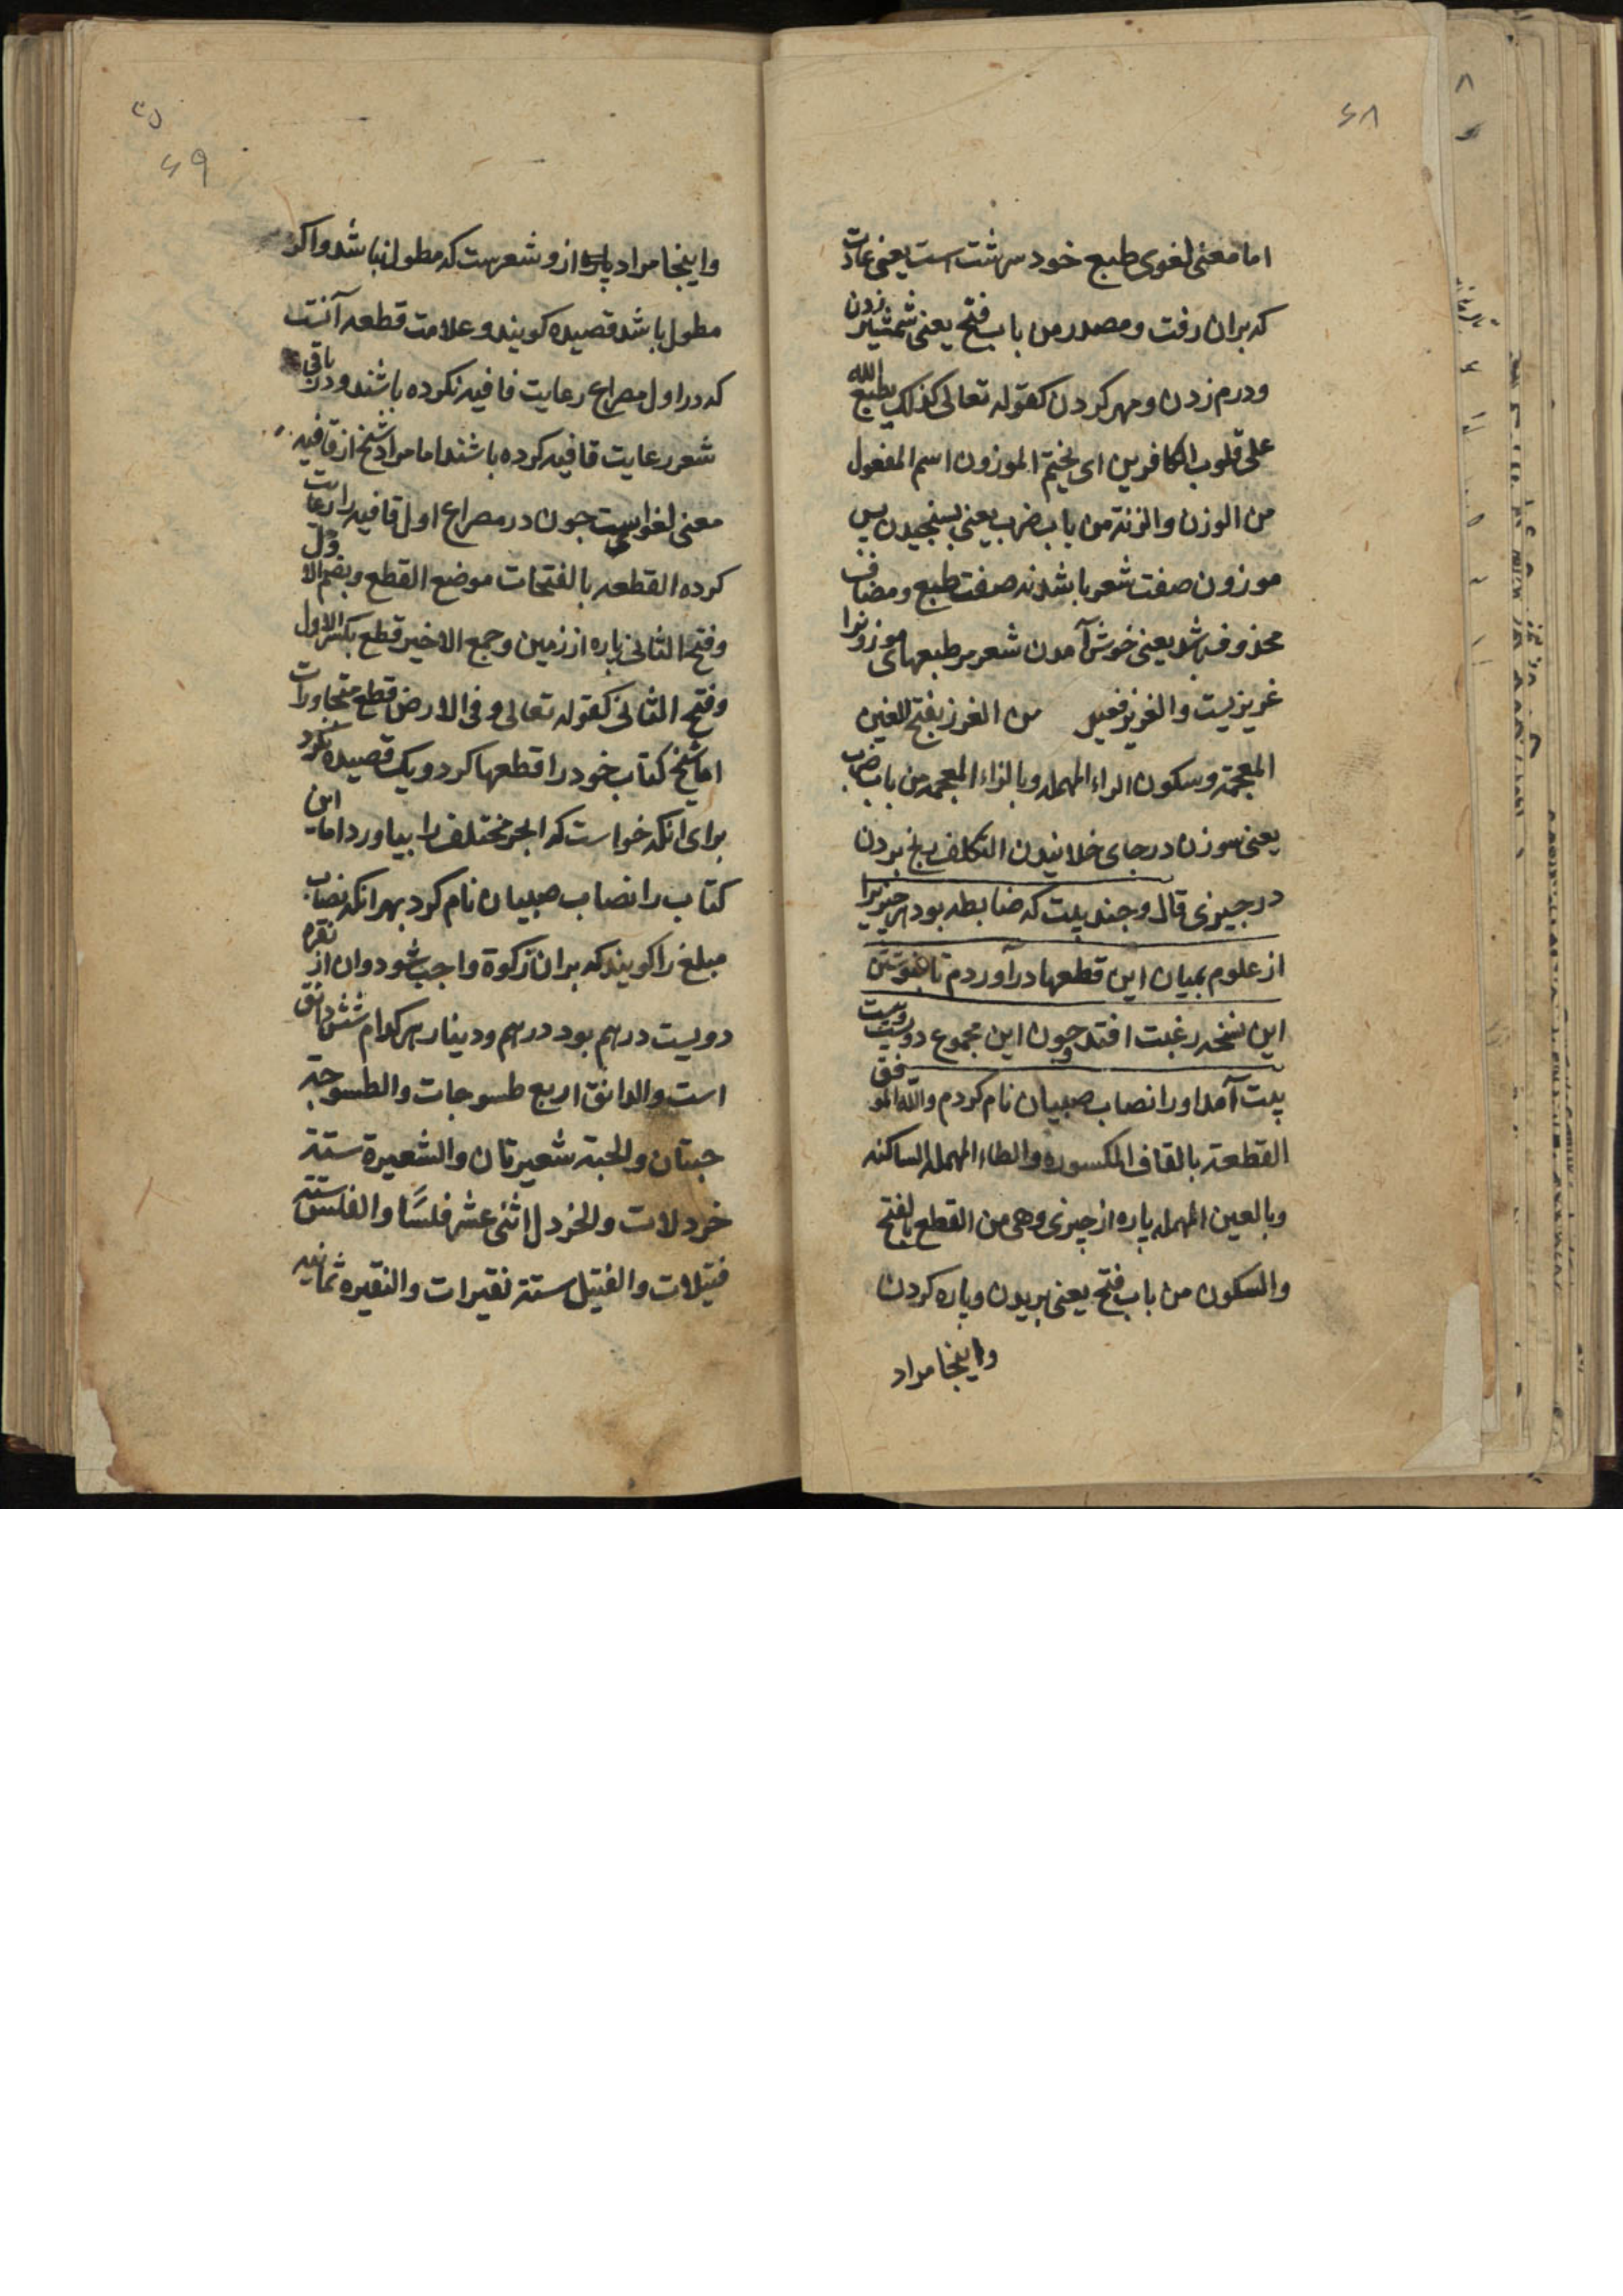 ۶۸
اما معنی لغوی طبع خود سرشت است یعنی عادت
که بران رفت و مصدر من باب فتح یعنی شمشیر زدن
و درم زدن و مهر کردن کقوله تعالی کذلک یطبع الله
علی قلوب الکافرین ای یختم الموزون اسم المفعول
من الوزن والزنة من باب ضرب یعنی بسنجیدن پس
موزون صفت شعر باشد نه صفت طبع و مضاف
محذوف باشد یعنی خوش آمدن شعر بر طبعهای موزونرا
غریزیست والغریز فعیل من الغرز بفتح الغین
المعجمة وسکون الراء المهمله وبالزاء المعجمه من باب ضرب
یعنی سوزن در جای خلانیدن التکلف رنج بردن
در چیزی قال وجند بیت که ضابطه بود هر چیزیرا
از علوم بمیان این قطعها درآوردم تا بنوشتن
این نسخه رغبت افتد وچون این مجموع دویست
بیت آمد اورا نصاب صبیان نام کردم والله الموفق
القطعة بالقاف المکسوره والطاء المهمله الساکنه
وبالعین المهمله پاره از چیزی وهی من القطع بالفتح
والسکون من باب فتح یعنی بریدن وپاره کردن
واینجا مراد
۶۹
واینجا مراد پاره از وشعرست که مطول نباشد واکر
مطول باشد قصیده کویند وعلامت قطعه آنست
که در اول مصراع رعایت قافیه نکرده باشند ودر باقی
شعر رعایت قافیه کرده باشند اما مراد شیخ از قافیه
معنی لغویست جون در مصراع اول قافیه را رعایت
کرده القطعه بالفتحات موضع القطع وبضم الاول
وفتح الثانی پاره از زمین وجمع الاخیر قطع بکسر الاول
وفتح الثانی کقوله تعالی وفی الارض قطع متجاورات
اما شیخ کتاب خود را قطعها کرد ویک قصیده نکرد
برای انکه خواست که ابحر مختلف را بیاورد اما این
کتاب را نصاب صبیان نام کرد بهر انکه نصاب
مبلغ را کویند که بران زکوة واجب شود وان از نقره
دویست درهم بود درهم ودینار هر کدام شش دانق
است والدانق اربع طسوجات والطسوجة
حبتان والحبة شعیرتان والشعیرة ستة
خردلات والخردل اثنی عشر فلسًا والفلس ستة
فتیلات والفتیل ستة نقیرات والنقیره ثمانیه